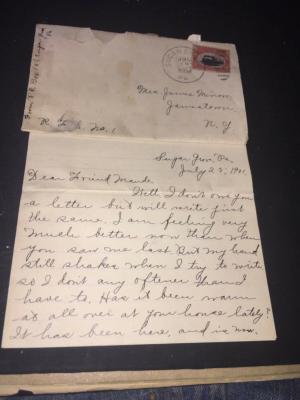 Miss Jamie Minor,
Jamestown,
N. Y.
R. F. D. No. 1
Sugar Gro', Pa.
July 25, 1901.
Dear Friend Maude.
Well I don't owe you
a letter but will write just
the same. I am feeling very
much better now than when
you saw me last. But my hand
still shakes when I try to write
so I don't any oftener than I
have to. Has it been warm
at all over at your house lately?
It has been here, and is now.